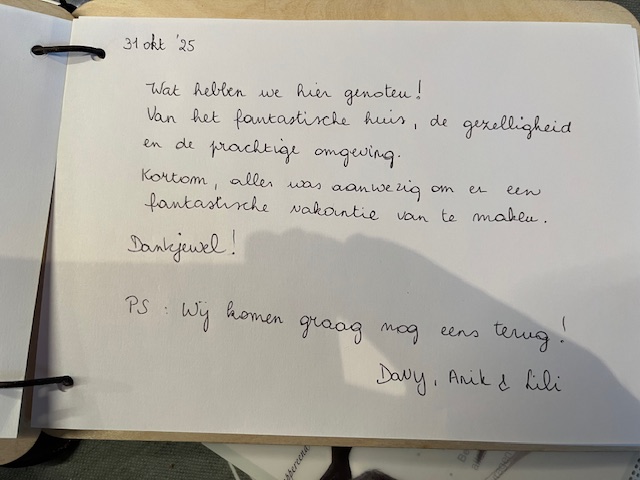 31 okt '25
Wat hebben we hier genoten!
Van het fantastische huis, de gezelligheid
en de prachtige omgeving.
Kortom, alles was aanwezig om er een
fantastische vakantie van te maken.
Dankjewel!
PS : Wij komen graag nog eens terug!
Davy, Anik & Lili